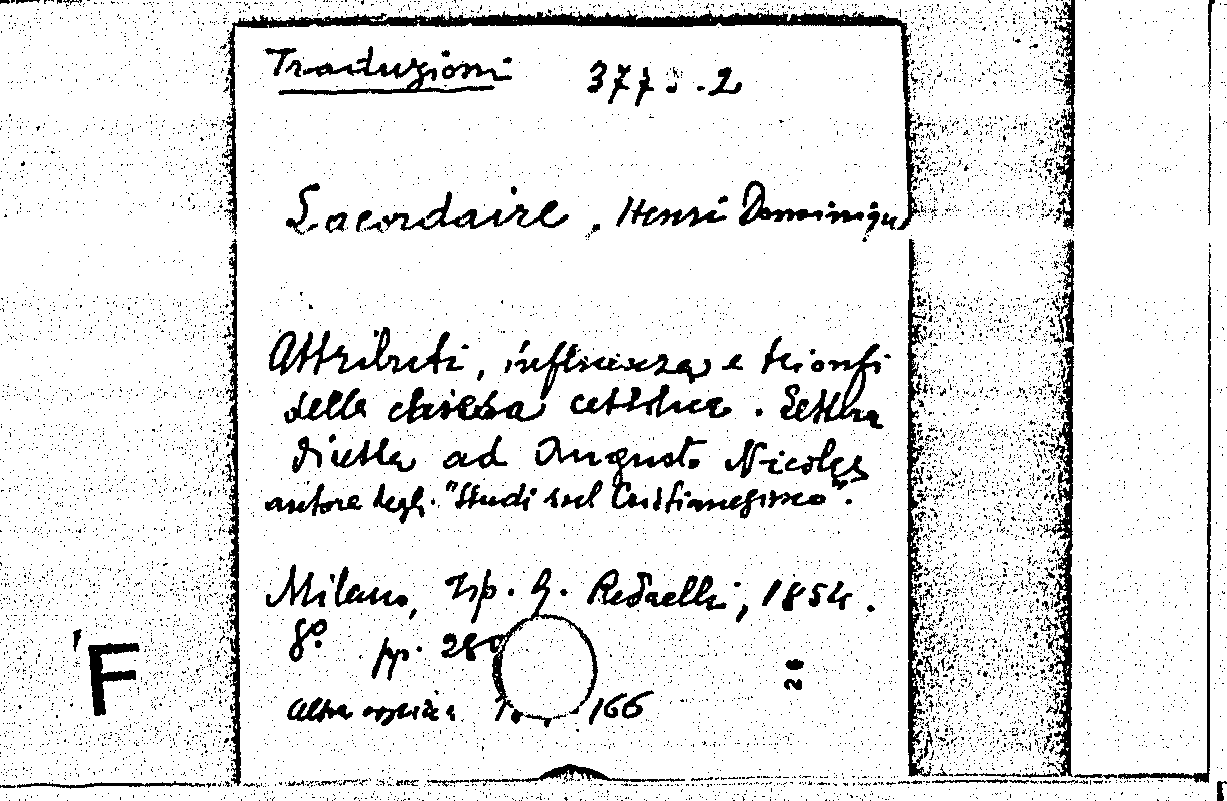 Traduzioni 377 . 2
Lacordaire, Henri Dominique
Attributi, influenza e trionfi
della chiesa cattolica. Lettera
diretta ad Augusto Nicolas
autore degli "Studi sul Cristianesimo".
Milano, Tip. G. Redaelli, 1854.
8° pp. 280
Altra copia 166
26
F